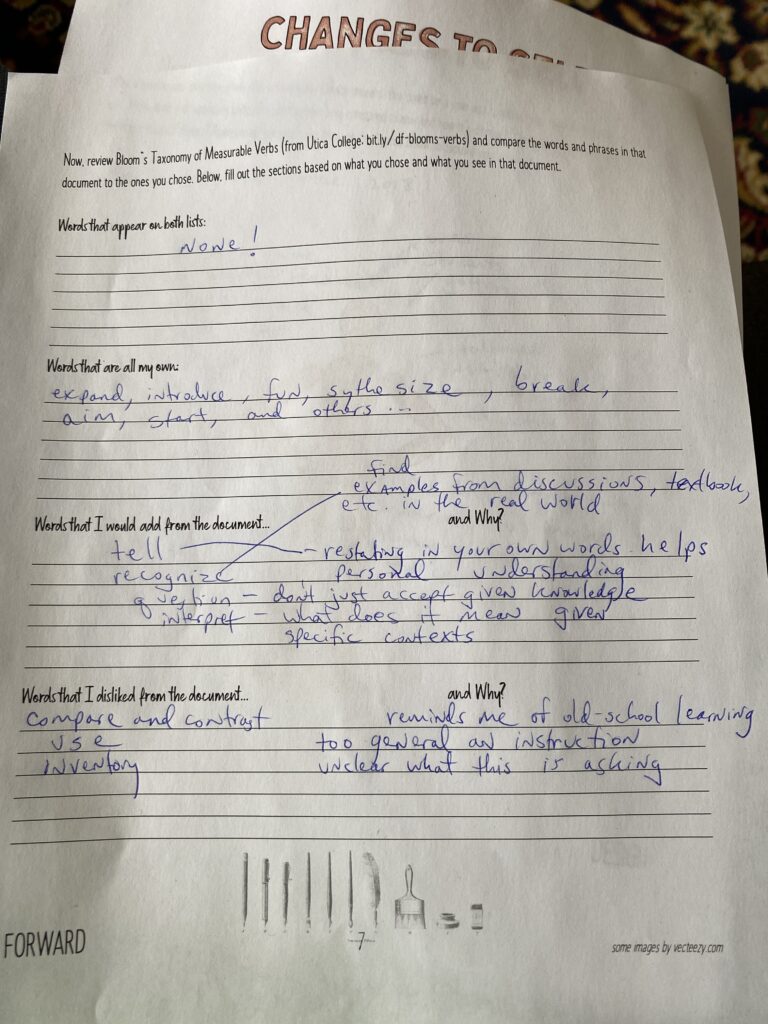 CHANGES TO
Now, review Bloom's Taxonomy of Measurable Verbs (from Utica College: bit.ly/df-blooms-verbs) and compare the words and phrases in that
document to the ones you chose. Below, fill out the sections based on what you chose and what you see in that document.
Words that appear on both lists:
None!
Words that are all my own:
expand, introduce, fun, sythesize, break,
aim, start, and others...
find
examples from discussions, textbook,
etc. in the real world
Words that I would add from the document... and Why?
tell - restating in your own words helps
recognize personal understanding
question - don't just accept given knowledge
interpret - what does it mean given
specific contexts
Words that I disliked from the document... and Why?
compare and contrast reminds me of old-school learning
use too general an instruction
inventory unclear what this is asking
7
FORWARD
some images by vecteezy.com